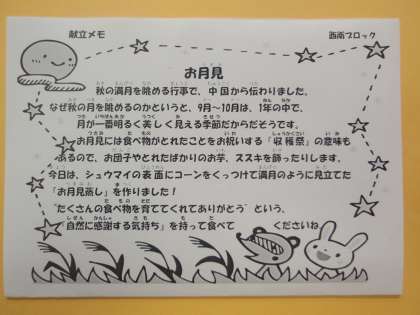 献立メモ
西南ブロック
お月見
秋の満月を眺める行事で、中国から伝わりました。
なぜ秋の月を眺めるのかというと、9月~10月は、1年の中で、
月が一番明るく美しく見える季節だからだそうです。
お月見には食べ物がとれたことをお祝いする「収穫祭」の意味も
あるので、お団子やとれたばかりのお芋、ススキを飾ったりします。
今日は、シュウマイの表面にコーンをくっつけて満月のように見立てた
「お月見蒸し」を作りました!
"たくさんの食べ物を育ててくれてありがとう" という、
「自然に感謝する気持ち」を持って食べて くださいね